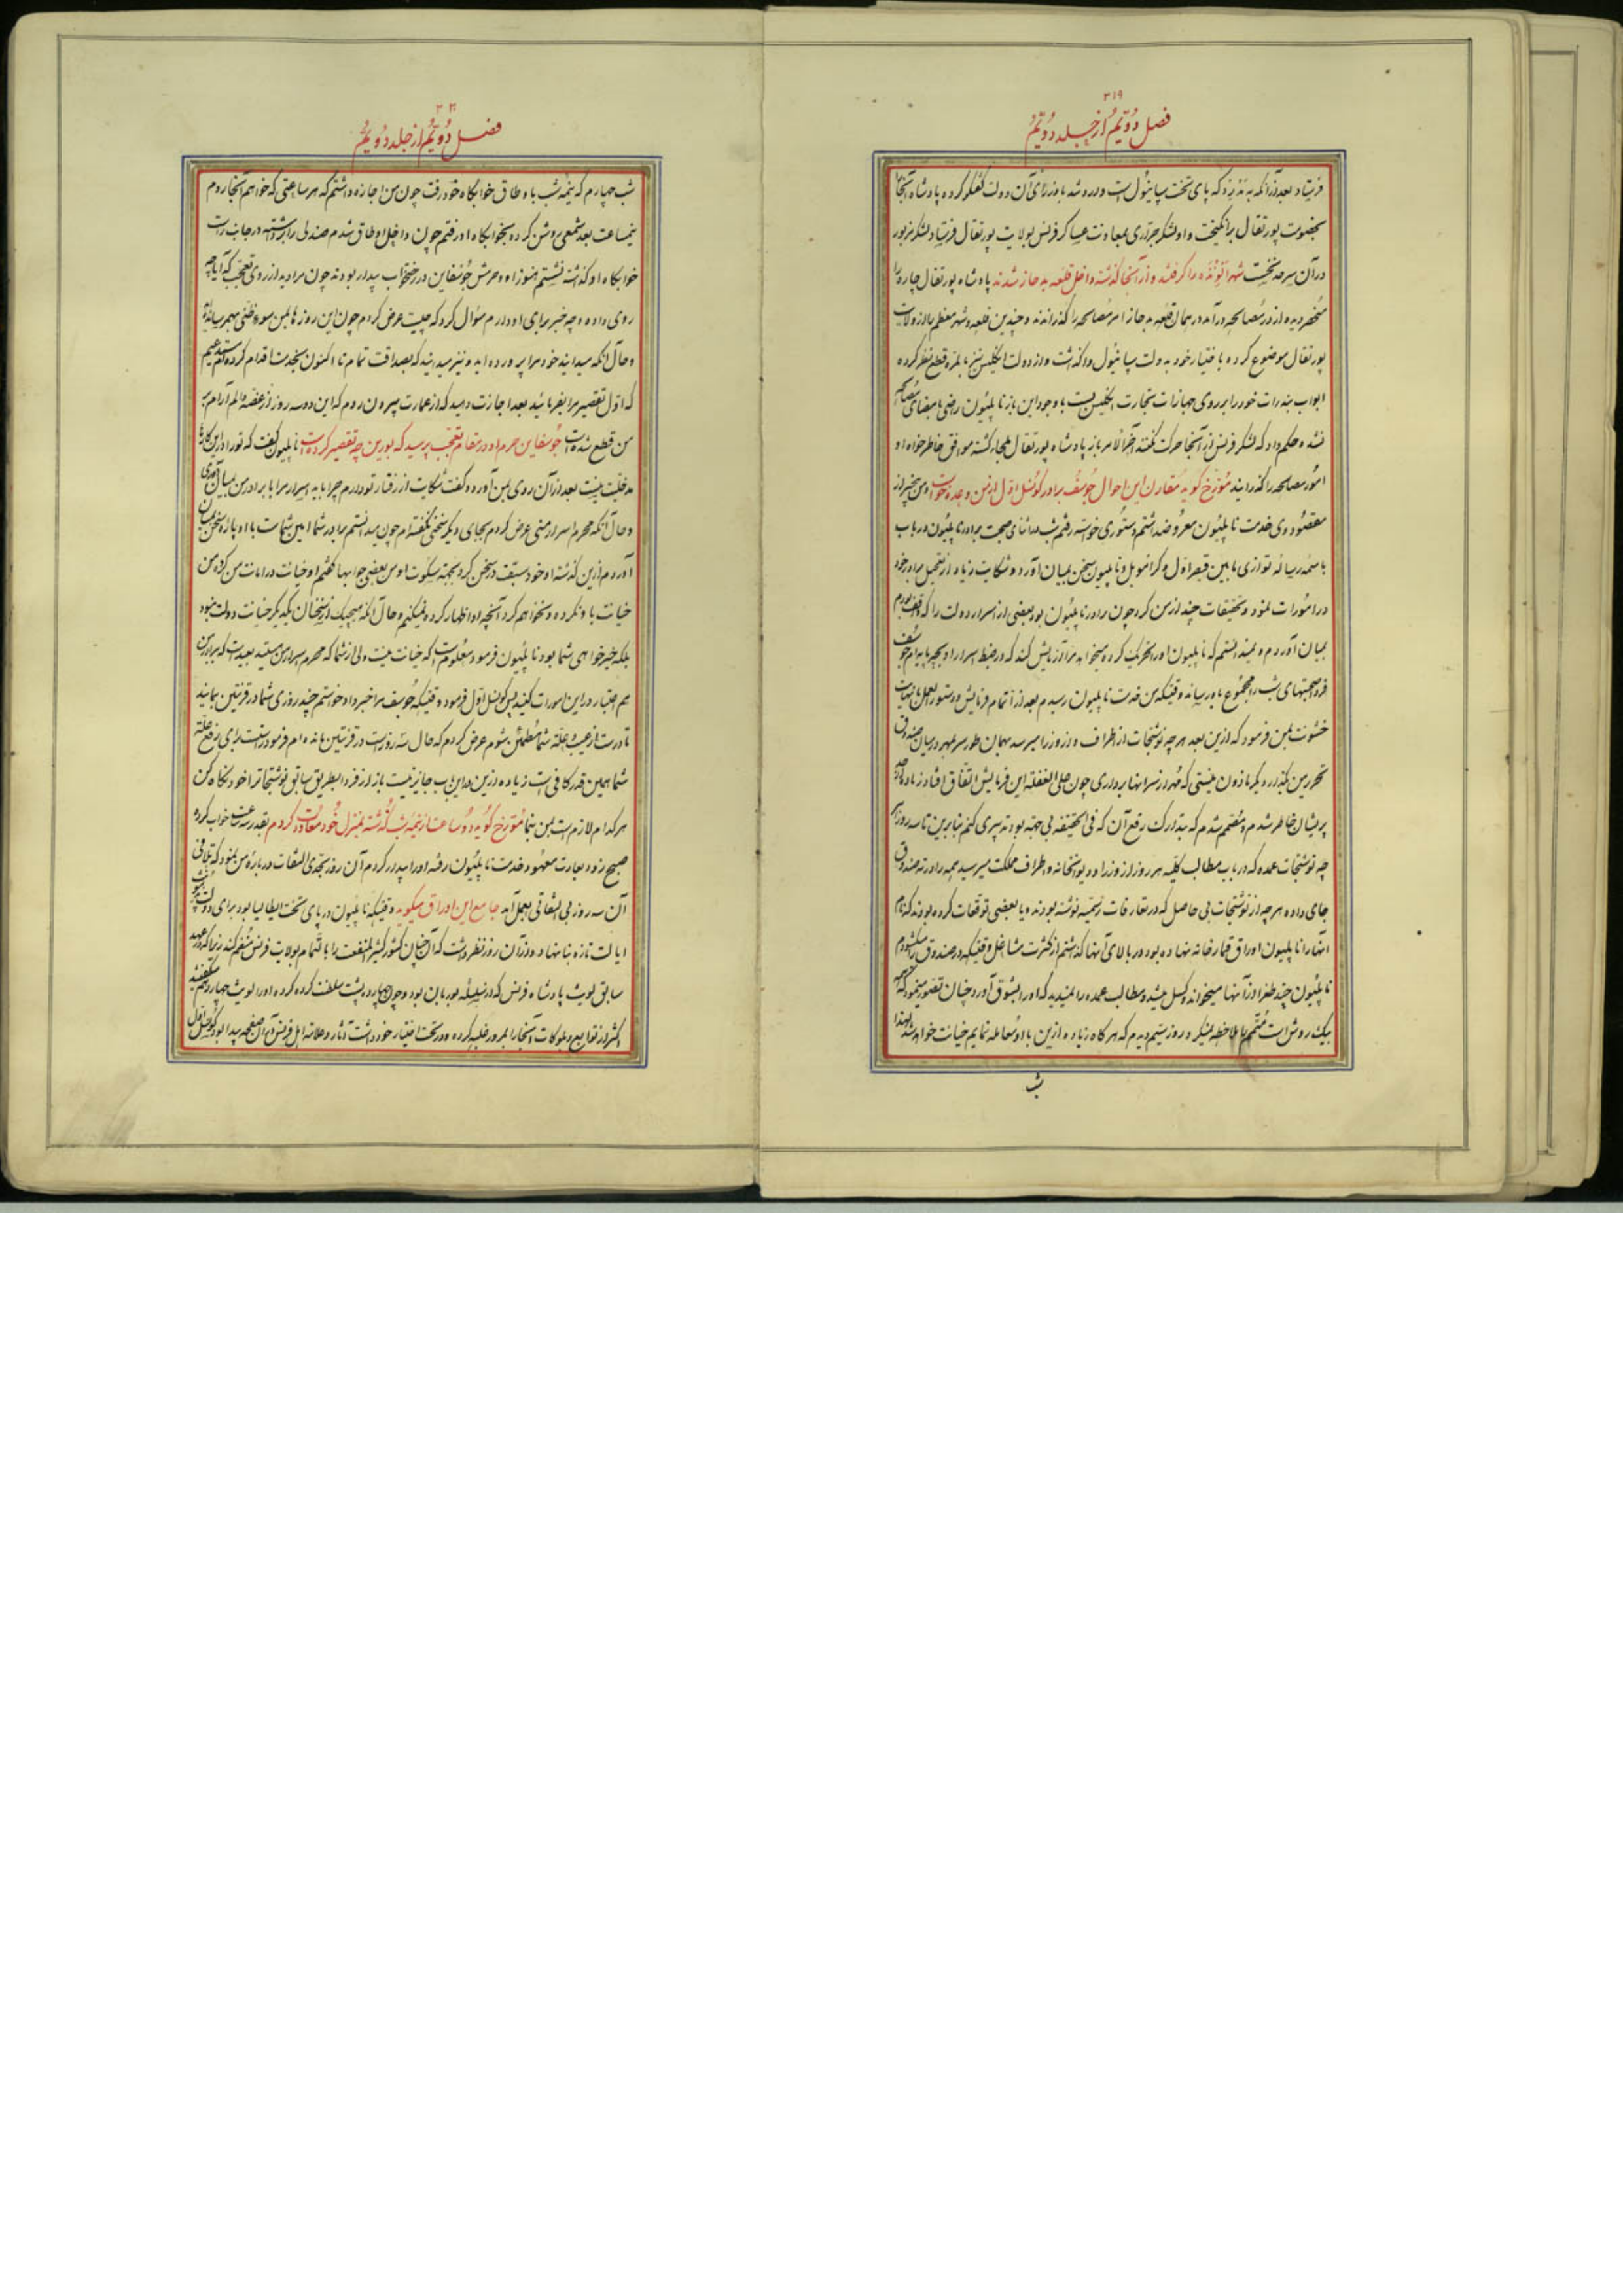 ۳۱۹
فصل دویّم از جلد دویّم
فرستاد بعد از آنکه به مدرید که پای تخت سپانیول است وارد شد با وزرای آن دولت گفتگو کرده پادشاه آنجا
بخصومت پورتقال برانگیخت و او لشکر جرّاری بمعاونت عساکر فرنس بولایت پورتقال فرستاد لشکر مزبور
در آن سرحد نخست شهر را گرفتند و از آنجا گذشته داخل قلعه شدند پادشاه پورتقال چاره را
منحصر دیده از در مصالحه درآمد در همان قلعه امر مصالحه را گذراندند و چندین قلعه و شهر معظم را از ولایت
پورتقال موضوع کرده باختیار خود بدولت سپانیول واگذاشت و از دولت انگلیس نیز بالمرّه قطع نظر کرده
ابواب بندرات خود را بر روی جهازات تجارت انگلیس بست با وجود این باز ناپلیون راضی بامضای مصالحه
نشد و حکم داد که لشکر فرنس از آنجا حرکت نکنند آخرالامر باز پادشاه پورتقال ملجاء گشته موافق خاطرخواه او
امور مصالحه را گذرانید مورّخ گوید مقارن این احوال جوسف برادر کونسل اوّل از من وعده خواست و من بیخبر از
مقصود وی خدمت ناپلیون معروض داشتم و دستوری خواسته رفتم شب در اثنای صحبت برادر ناپلیون در باب
باسمه رساله توازی مابین قیصر اوّل و کرامویل و ناپلیون سخن بمیان آورد و شکایت زیاد از تعجیل برادر خود
در امورات نمود و تحقیقات چند از من کرد چون برادر ناپلیون بود بعضی از اسرار دولت را که واقف بودم
بمیان آوردم و نمیدانستم که ناپلیون او را تحریک کرده میخواهد مرا آزمایش کند که در ضبط اسرار او بچه پایه‌ام جوسف
فردا صحبتهای شب را مجموع باو رسانده وقتیکه من خدمت ناپلیون رسیدم بعد از اتمام فرمایش و دستورالعمل بنهایت
خشونت بمن فرمود که ازین بعد هر چه نوشتجات از اطراف و از وزرا میرسد بهمان طور سر بمهر در میان صندوق
تحریر من بگذار دیگر ماذون نیستی که مهر از سر آنها برداری چون علی الغفله این فرمایش اتفاق افتاد زیاده از حد
پریشان خاطر شدم و مصمم شدم که بتدارک رفع آن که فی الحقیقه بی جهة بود تدبیری کنم بنابرین تا سه روز هر
چه نوشتجات عمده که در باب مطالب کلیّه هر روز از وزرا و دیوانخانه و اطراف مملکت میرسید همه را در ته صندوق
جای داده هر چه از نوشتجات بی حاصل که در تعارفات رسمیّه نوشته بودند و یا بعضی توقعات کرده بودند که نام
آنها را ناپلیون اوراق قمارخانه نهاده بود در بالای آنها گذاشتم از کثرت مشاغل وقتیکه در صندوق را میگشودم
ناپلیون چند طغرا از آنها میخواند و کسل میشد و مطالب عمده را نمیدید که او را بشوق آورد و چنان تصور مینمود که همه
بیک روش است متمم را ملاحظه نمیکرد روز سیّم دیدم که هر گاه زیاده ازین با او معامله نمایم خیانت خواهد شد لهذا
شب
۳۲۰
فصل دویّم از جلد دویّم
شب چهارم که نیمه شب باوطاق خوابگاه خود رفت چون من اجازه داشتم که هر ساعتی که خواهم آنجا روم
نیمساعت بعد شمعی روشن کرده بخوابگاه او رفتم چون داخل اوطاق شدم صندلی را برداشته در جانب راست
خوابگاه او گذاشته نشستم هنوز او و حرمش جوسفاین در رختخواب بیدار بودند چون مرا دید از روی تعجب که آیا چه
روی داده و چه خبر برای او دارم سؤال کرد که چیست عرض کردم چون این روزها بمن سوء ظنی بهم رسانده‌اید
و حال آنکه میدانید خود مرا پرورده‌اید و نیز میدانید که بصداقت تمام تا اکنون بخدمت اقدام کرده‌ام
که اوّل تقصیر مرا بفرمائید بعد اجازت دهید که از عمارت بیرون روم که این دو سه روز از غصه و الم آرام بر
من قطع شده است جوسفاین حرم او در مقام تعجب پرسید که بورین چه تقصیر کرده است ناپلیون گفت که تو را در این کارها
مدخلیّت نیست بعد از آن روی بمن آورده گفت شکایت از رفتار تو دارم چرا باید اسرار مرا با برادر من بمیان آوری
و حال آنکه محرم اسرار منی عرض کردم بجای دیگر سخنی نگفته‌ام چون میدانستم برادر شما امین شماست با او پاره سخن بمیان
آوردم ازین گذشته او خود سبقت در سخن کرد بجهة سکوت او من بعضی جوابها گفتم او خیانت در امانت من کرده من
خیانت باو نکرده و نخواهم کرد آنچه او اظهار کرده نمیکنم و حال آنکه هیچیک از سخنان یکدیگر خیانت دولت نبود
بلکه خیرخواهی شما بود ناپلیون فرمود معلوم است که خیانت نیست ولی از شما که محرم اسرار من هستید بعید است که برادر من
هم اعتبار در این امورات کنید پس کونسل اوّل فرمود وقتیکه جوسف مرا خبر داد خواستم چند روزی شما در قرنتین بمانید
تا درست از عیب و علّت شما مطمئن بشوم عرض کردم که حال سه روز است در قرنتین مانده‌ام فرمود راست است برای رفع علّت
شما همین قدر کافی است زیاده ازین در این باب جایز نیست باز از فردا بطریق سابق نوشتجات را خود نگاه کن
هر کدام لازم است بمن بنما مورّخ گوید دو ساعت از نیمه شب گذشته بمنزل خود معاودت کردم بقدر سه ساعت خواب کرده
صبح زود بعادت معهود خدمت ناپلیون رفته او را بیدار کردم آن روز بحدّی التفات درباره من نمود که تلافی
آن سه روز بی التفاتی بعمل آمد جامع این اوراق میگوید وقتیکه ناپلیون در پای تخت ایطالیا بود برای دولت
ایالت تازه بنا نهاد و در آن روز نظر داشت که آن چنان کشور کثیر المنفعت را بالتمام بولایت فرنس منضم کند زیرا که در عهد
سابق لویث پادشاه فرنس که در سلسله بوربان بود و چهارده پشت سلطنت کرده کرده او را لویث چهاردهم میگفتند
اکثر از توابع و بلوکات آنجا را بمرور غلبه کرده و در تحت اختیار خود داشت و آثار و علامت اهل فرنس در آن صفحه پیدا بود کونسل اوّل